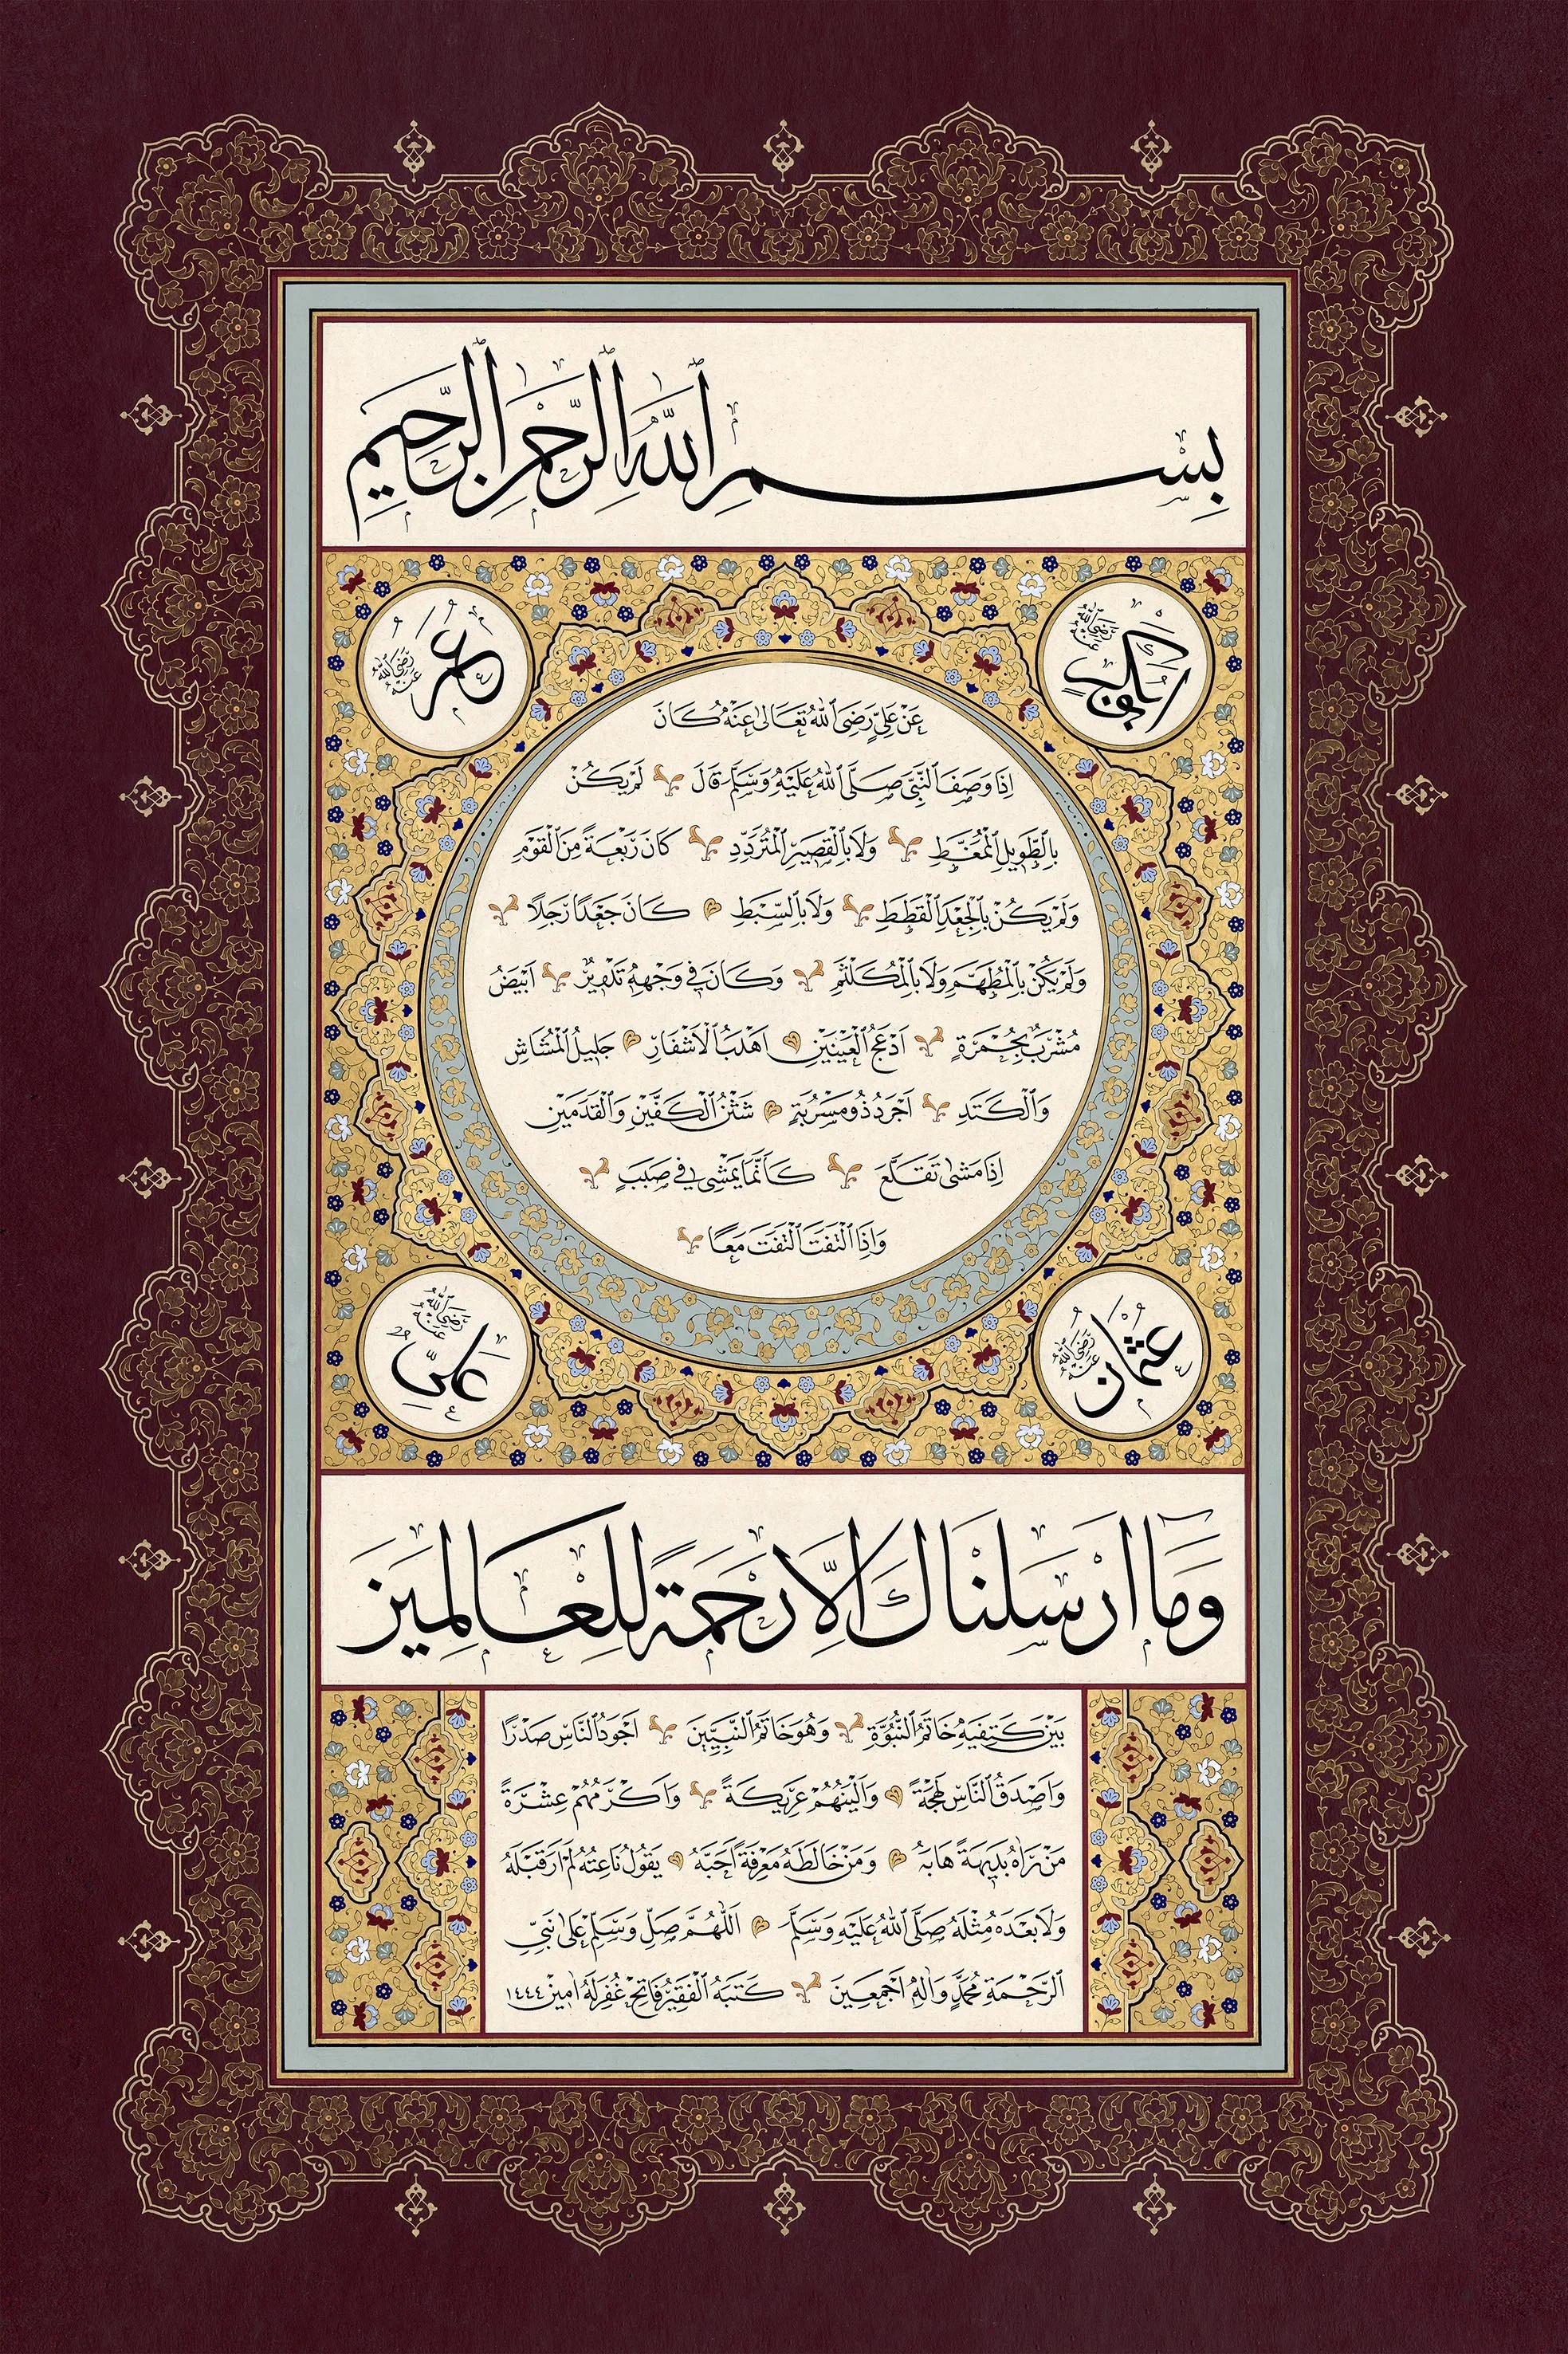 بِسْمِ ٱللّٰهِ ٱلرَّحْمٰنِ ٱلرَّحِيمِ
ابوبكر رَضِيَ ٱللّٰهُ عَنْهُ
عُمَرُ رَضِيَ ٱللّٰهُ عَنْهُ
عَنْ عَلِيٍّ رَضِيَ ٱللّٰهُ تَعَالٰى عَنْهُ كَانَ
اِذَا وَصَفَ ٱلنَّبِيَّ صَلَّى ٱللّٰهُ عَلَيْهِ وَسَلَّمَ قَالَ لَمْ يَكُنْ
بِالطَّوِيلِ ٱلْمُمَّغِطِ وَلَا بِالْقَصِيرِ ٱلْمُتَرَدِّدِ كَانَ رَبْعَةً مِنَ ٱلْقَوْمِ
وَلَمْ يَكُنْ بِالْجَعْدِ ٱلْقَطِطِ وَلَا بِالسَّبِطِ كَانَ جَعْدًا رَجِلًا
وَلَمْ يَكُنْ بِالْمُطَهَّمِ وَلَا بِالْمُكَلْثَمِ وَكَانَ فِي وَجْهِهِ تَدْوِيرٌ اَبْيَضُ
مُشْرَبٌ بِحُمْرَةٍ اَدْعَجُ ٱلْعَيْنَيْنِ اَهْدَبُ ٱلْاَشْفَارِ جَلِيلُ ٱلْمُشَاشِ
وَٱلْكَتَدِ اَجْرَدُ ذُو مَسْرُبَةٍ شَثْنُ ٱلْكَفَّيْنِ وَٱلْقَدَمَيْنِ
اِذَا مَشٰى تَقَلَّعَ كَاَنَّمَا يَمْشِي فِي صَبَبٍ
وَاِذَا ٱلْتَفَتَ ٱلْتَفَتَ مَعًا
عُثْمَان رَضِيَ ٱللّٰهُ عَنْهُ
عَلِيٌّ رَضِيَ ٱللّٰهُ عَنْهُ
وَمَا اَرْسَلْنَاكَ اِلَّا رَحْمَةً لِلْعَالَمِينَ
بَيْنَ كَتِفَيْهِ خَاتَمُ ٱلنُّبُوَّةِ وَهُوَ خَاتَمُ ٱلنَّبِيِّينَ اَجْوَدُ ٱلنَّاسِ صَدْرًا
وَاَصْدَقُ ٱلنَّاسِ لَهْجَةً وَاَلْيَنُهُمْ عَرِيكَةً وَاَكْرَمُهُمْ عِشْرَةً
مَنْ رَاٰهُ بَدِيهَةً هَابَهُ وَمَنْ خَالَطَهُ مَعْرِفَةً اَحَبَّهُ يَقُولُ نَاعِتُهُ لَمْ اَرَ قَبْلَهُ
وَلَا بَعْدَهُ مِثْلَهُ صَلَّى ٱللّٰهُ عَلَيْهِ وَسَلَّمَ اَللّٰهُمَّ صَلِّ وَسَلِّمْ عَلٰى نَبِيِّ
ٱلرَّحْمَةِ مُحَمَّدٍ وَاٰلِهِ اَجْمَعِينَ كَتَبَهُ ٱلْفَقِيرُ فَاتِحْ غُفِرَ لَهُ اٰمِين ١٤٤٤